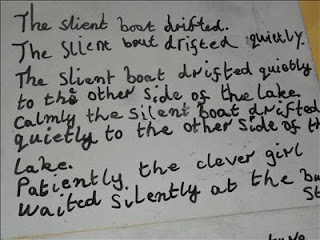 The slient boat drifted.
The slient boat drifted quietly.
The slient boat drifted quietly
to the other side of the lake.
Calmly the silent boat drifted
quietly to the other side of
lake.
Patiently the clever girl
waited silently at the